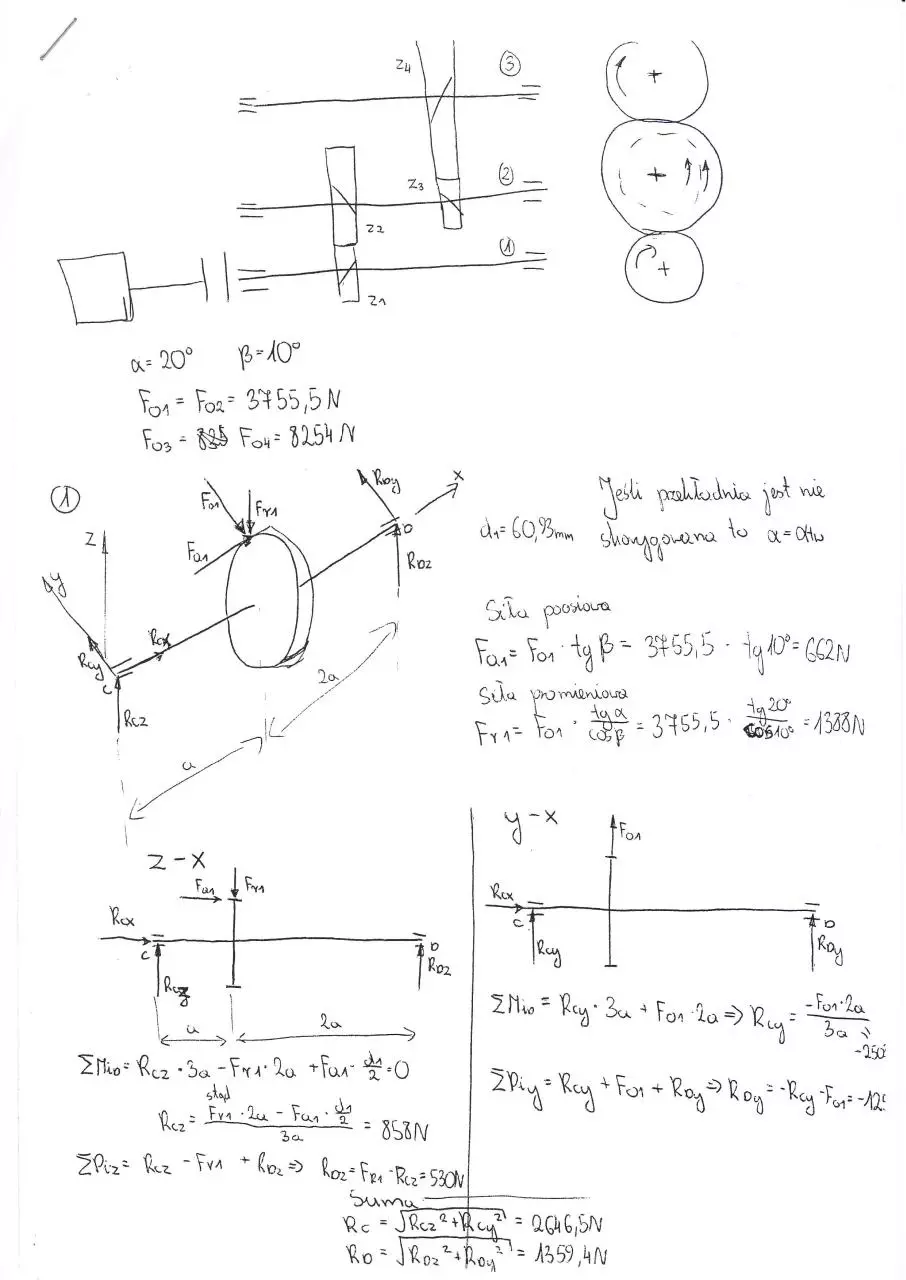 z4
③
z3
②
z2
①
z1
α=20° β=10°
Fo1 = Fo2 = 3755,5N
Fo3 = Fo4 = 8254N
①
Z
y
x
Fo1
Fr1
Fa1
RDy
D
RDz
Rcy
Rcx
C
Rcz
a
2a
Jeśli przekładnia jest nie
d1=60,93mm skorygowana to α=αtw
Siła poosiowa
Fa1 = Fo1 · tg β = 3755,5 · tg10° = 662N
Siła promieniowa
Fr1 = Fo1 · tgα/cosβ = 3755,5 · tg20°/cos10° = 1388N
z-x
Fa1 Fr1
Rcx
C
D
Rcz
RDz
a
2a
ΣMiD = Rcz · 3a - Fr1 · 2a + Fa1 · d1/2 = 0
stąd
Rcz = (Fr1 · 2a - Fa1 · d1/2)/3a = 858N
ΣPiz = Rcz - Fr1 + RDz => RDz = Fr1 - Rcz = 530N
y-x
Fo1
Rcx
C
D
Rcy
RDy
ΣMiD = Rcy · 3a + Fo1 · 2a => Rcy = -Fo1 · 2a/3a
ΣPiy = Rcy + Fo1 + RDy => RDy = -Rcy - Fo1 =
Suma
Rc = √(Rcz² + Rcy²) = 2646,5N
RD = √(RDz² + RDy²) = 1359,4N